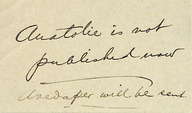 Anatolie is not
published now
will be sent